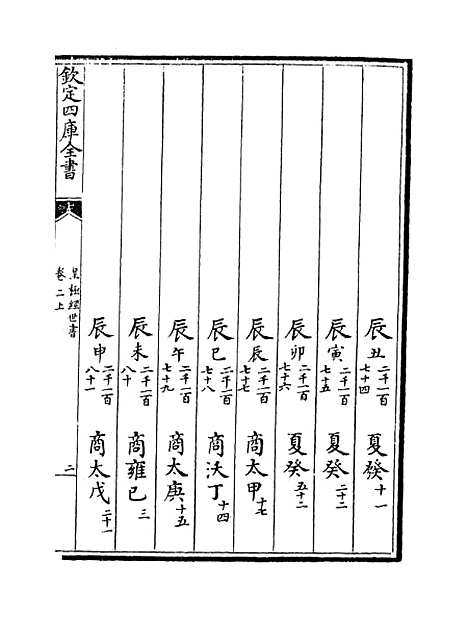 辰丑二千一百七十四 夏發十一
辰寅二千一百七十五 夏癸二十二
辰卯二千一百七十六 夏癸五十二
辰辰二千一百七十七 商太甲十七
辰巳二千一百七十八 商沃丁十四
辰午二千一百七十九 商太庚十五
辰未二千一百八十 商雍己三
辰申二千一百八十一 商太戊二十一
欽定四庫全書
皇極經世書
卷二上
二